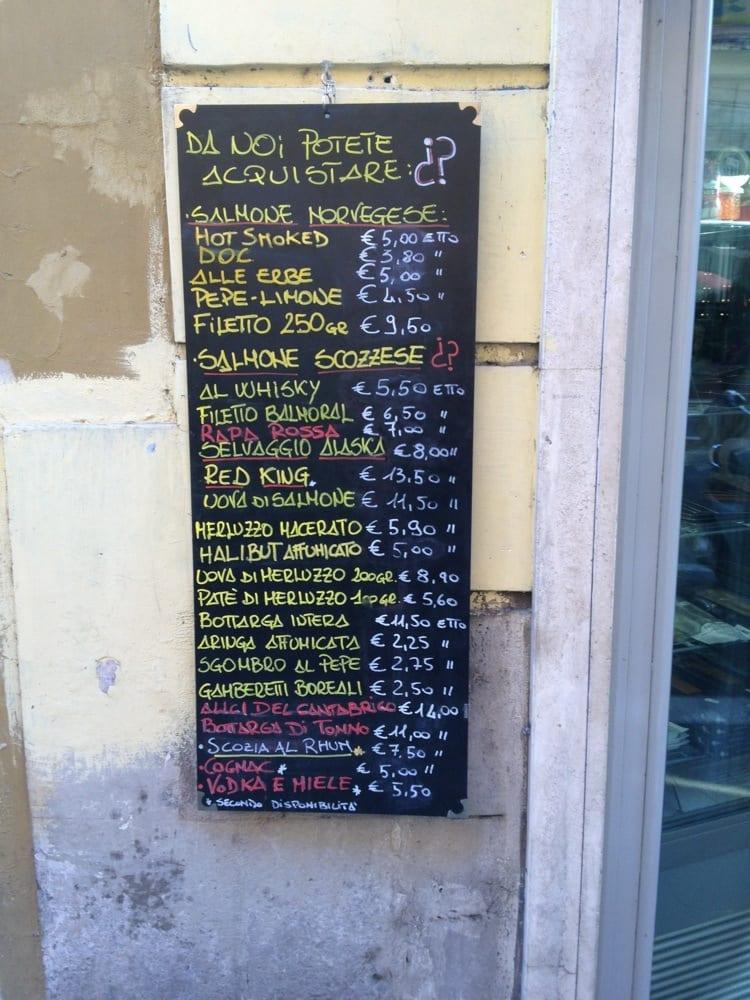 DA NOI POTETE
ACQUISTARE: ¿?
·SALMONE NORVEGESE:
HOT SMOKED € 5,00 ETTO
DOC € 3,80 "
ALLE ERBE € 5,00 "
PEPE-LIMONE € 4,50 "
FILETTO 250GR € 9,50
·SALMONE SCOZZESE ¿?
AL WHISKY € 5,50 ETTO
FILETTO BALMORAL € 6,50 "
RAPA ROSSA € 7,00 "
SELVAGGIO ALASKA € 8,00 "
RED KING. € 13,50 "
UOVA DI SALMONE € 11,50 "
MERLUZZO MACERATO € 5,90 "
HALIBUT AFFUMICATO € 5,00 "
UOVA DI MERLUZZO 200GR. € 8,90
PATÈ DI MERLUZZO 100GR. € 5,60
BOTTARGA INTERA € 11,50 ETTO
ARINGA AFFUMICATA € 2,25 "
SGOMBRO AL PEPE € 2,75 "
GAMBERETTI BOREALI € 2,50 "
ALICI DEL CANTABRICO € 14,00 "
BOTTARGA DI TONNO € 11,00 "
·SCOZIA AL RHUM * € 7,50 "
·COGNAC * € 5,00 "
·VODKA E MIELE * € 5,50
*. SECONDO DISPONIBILITA'